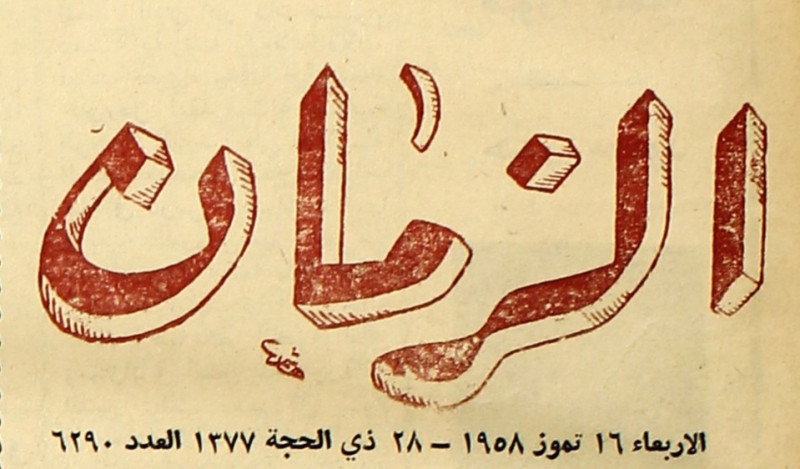 الزمان
الاربعاء ١٦ تموز ١٩٥٨ – ٢٨ ذي الحجة ١٣٧٧ العدد ٦٢٩٠